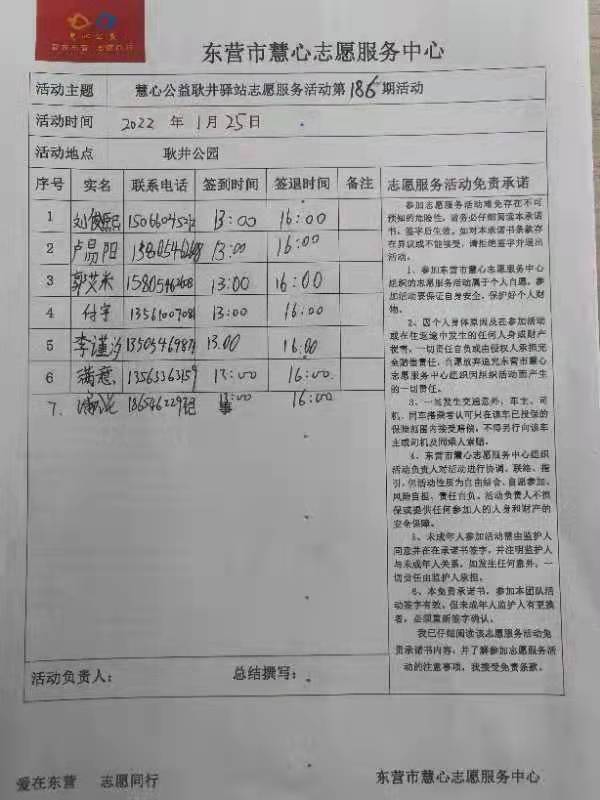 慧心公益
爱在东营 志愿同行
东营市慧心志愿服务中心
活动主题 慧心公益耿井驿站志愿服务活动第186期活动
活动时间 2022 年 1月 25日
活动地点 耿井公园
序号 实名 联系电话 签到时间 签退时间 备注 志愿服务活动免责承诺
1 13:00 16:00
2 卢易阳 13:00 16:00
3 郭艾米 13:00 16:00
4 付宇 13:00 16:00
5 李谨汐 13:00 16:00
6 满意 13:00 16:00
7. 13:00 16:00
记 事
参加志愿服务活动难免存在不可
预知的危险性，请务必仔细阅读本承诺
书，签字后生效。如对本承诺书条款存
在异议或不能接受，请拒绝签字并退出
活动。
1、参加东营市慧心志愿服务中心
组织的志愿服务活动属于个人自愿，参
加活动要保证自身安全，保护好个人财
物。
2、因个人身体原因及在参加活动
或在往返途中发生的任何人身或财产
损害，一切责任自负或由侵权人承担完
全赔偿责任，自愿放弃追究东营市慧心
志愿服务中心组织因组织活动而产生
的一切责任。
3、一旦发生交通意外，车主、司
机、同车搭乘者认可只在该车已投保的
保险范围内接受赔偿，不得另行向该车
主或司机及同乘人索赔。
4、东营市慧心志愿服务中心组织
活动负责人对活动进行协调、联络、指
引，但活动性质为自由结合、自愿参加、
风险自担、责任自负。活动负责人不担
保或提供任何参加人的人身和财产的
安全保障。
5、未成年人参加活动需由监护人
同意并在在承诺书签字，并注明监护人
与未成年人关系，如发生任何意外，一
切责任由监护人承担。
6、本免责承诺书，参加本团队活
动签字有效，但未成年人监护人有更换
者，必须重新签字确认。
我已仔细阅读该志愿服务活动免
责承诺书内容，并了解参加志愿服务活
动的注意事项，我接受免责条款。
活动负责人： 总结撰写：
爱在东营 志愿同行 东营市慧心志愿服务中心